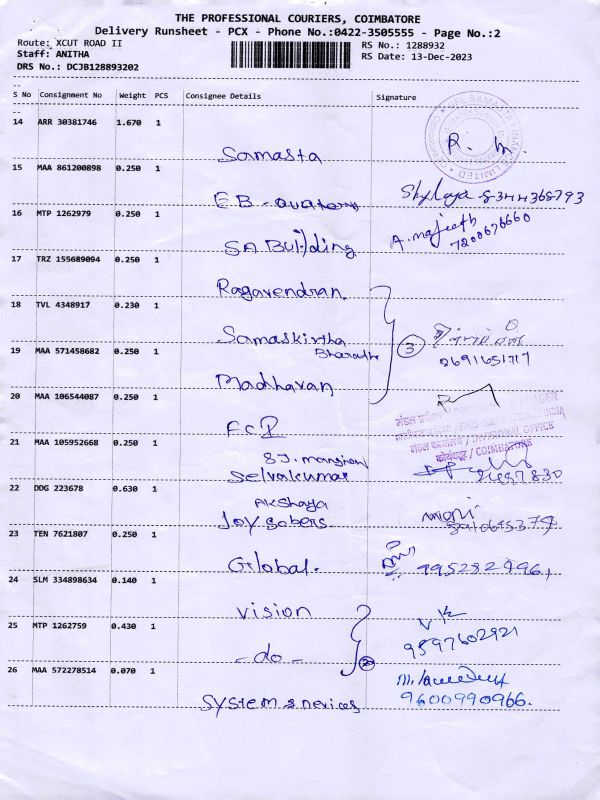 THE PROFESSIONAL COURIERS, COIMBATORE
Delivery Runsheet - PCX - Phone No.:0422-3505555 - Page No.:2
Route: XCUT ROAD II
RS No.: 1288932
Staff: ANITHA
RS Date: 13-Dec-2023
DRS No.: DCJB128893202
S No Consignment No Weight PCS Consignee Details Signature
14 ARR 30381746 1.670 1
Samasta
15 MAA 861200898 0.250 1
EB-
16 MTP 1262979 0.250 1
A. majeeth
7200676660
SA Building
17 TRZ 155689094 0.250 1
Ragavendran
18 TVL 4348917 0.230 1
Samaskirtha
Bharathi
3
2691651717
19 MAA 571458682 0.250 1
Madhavan
20 MAA 106544087 0.250 1
FCI
DIVISIONAL OFFICE
COIMBATORE
21 MAA 105952668 0.250 1
SJ. mansion
Selvakumar
22 DDG 223678 0.630 1
Akshaya
Joy Sobers
23 TEN 7621807 0.250 1
Global.
24 SLM 334898634 0.140 1
Vision
25 MTP 1262759 0.430 1
9597602921
- do -
2
26 MAA 572278514 0.070 1
System & Devices
9600990966.